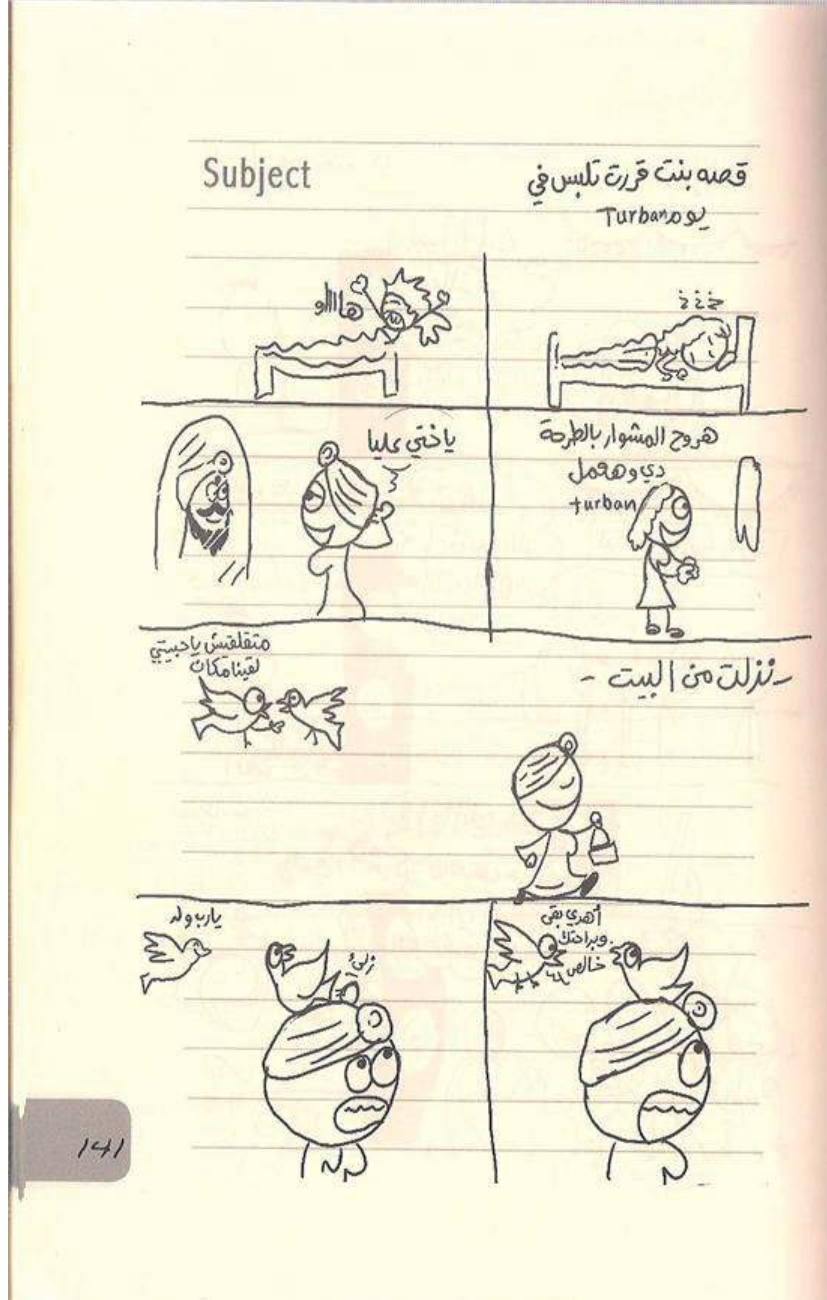 Subject
قصه بنت قررت تلبس في
يوم Turban
خ خ خ
هااااو
هروح المشوار بالطرحة
دي وهعمل
turban
ياختي عليا
- نزلت من البيت -
متقلقيش ياحبيبتي
لقينا مكان
أهدي بقى
وبراحتك
خالص
يارب ولد
141